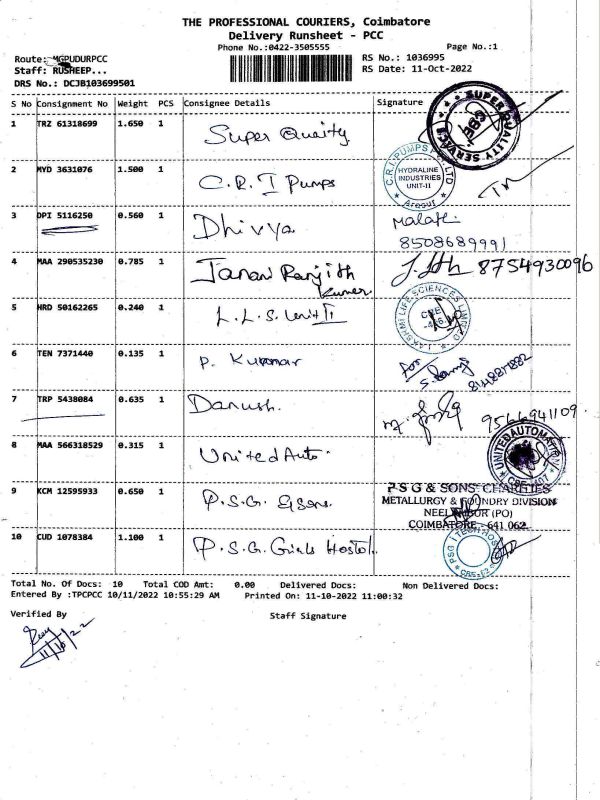 THE PROFESSIONAL COURIERS, Coimbatore
Delivery Runsheet - PCC
Phone No.:0422-3505555 Page No.:1
Route: MGPUDURPCC RS No.: 1036995
Staff: RUSHEEP... RS Date: 11-Oct-2022
DRS No.: DCJB103699501
S No Consignment No Weight PCS Consignee Details Signature
1 TRZ 61318699 1.650 1 Super Quality SUPER QUALITY SERVICE
2 MYD 3631076 1.500 1 C.R.I Pumps C.R.I. PUMPS PVT. LTD HYDRALINE INDUSTRIES UNIT-II Arasur
3 DPI 5116250 0.560 1 Dhivya Malathi 8508689991
4 MAA 290535230 0.785 1 Janani Ranjith Kumar 8754930096
5 HRD 50162265 0.240 1 L.L.S. Unit II LAKSHMI LIFE SCIENCES LIMITED CBE
6 TEN 7371440 0.135 1 P. Kummar For
7 TRP 5438084 0.635 1 Danush. 9566941109
8 MAA 566318529 0.315 1 United Auto. UNITED AUTOMATION
9 KCM 12595933 0.650 1 P.S.G. & Sons. P S G & SONS' CHARITIES
METALLURGY & FOUNDRY DIVISION
NEELAMBUR (PO)
COIMBATORE - 641 062
10 CUD 1078384 1.100 1 P.S.G. Girls Hostel. PSG I TECH HOSTEL CBE-62
Total No. Of Docs: 10 Total COD Amt: 0.00 Delivered Docs: Non Delivered Docs:
Entered By :TPCPCC 10/11/2022 10:55:29 AM Printed On: 11-10-2022 11:00:32
Verified By Staff Signature
11/10/22